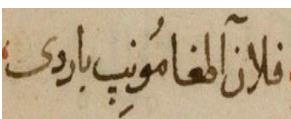 فلان آلطغا مُونیب باردی